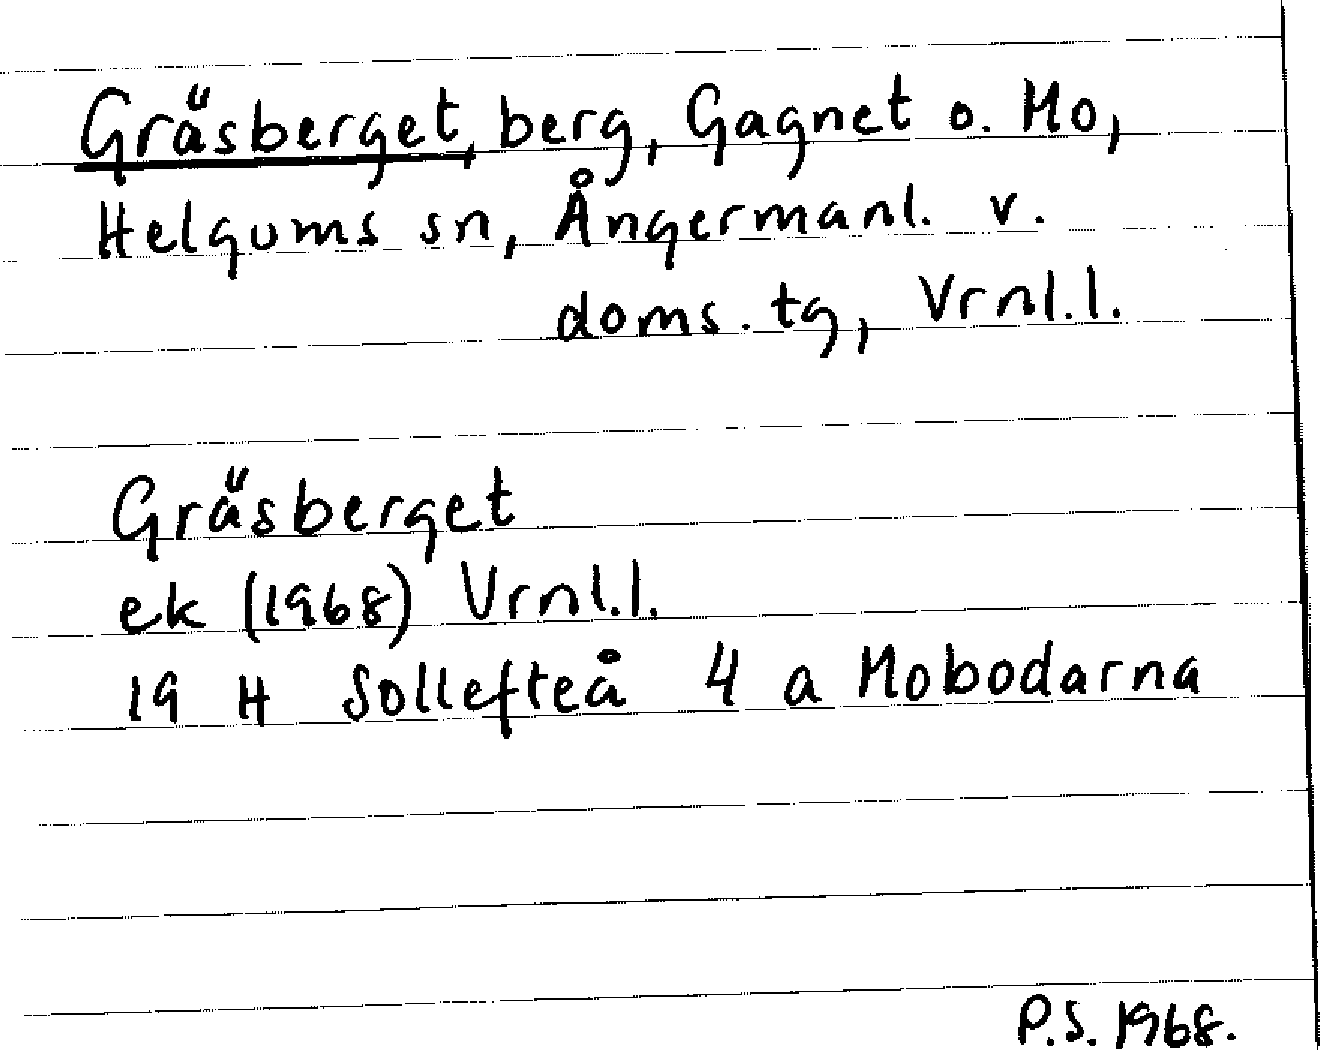 Gräsberget, berg, Gagnet o. Mo,
Helgums sn, Ångermanl. v.
doms. tg, Vrnl.l.
Gräsberget
ek (1968) Vrnl.l.
19 H Sollefteå 4 a Mobodarna
P.S. 1968.